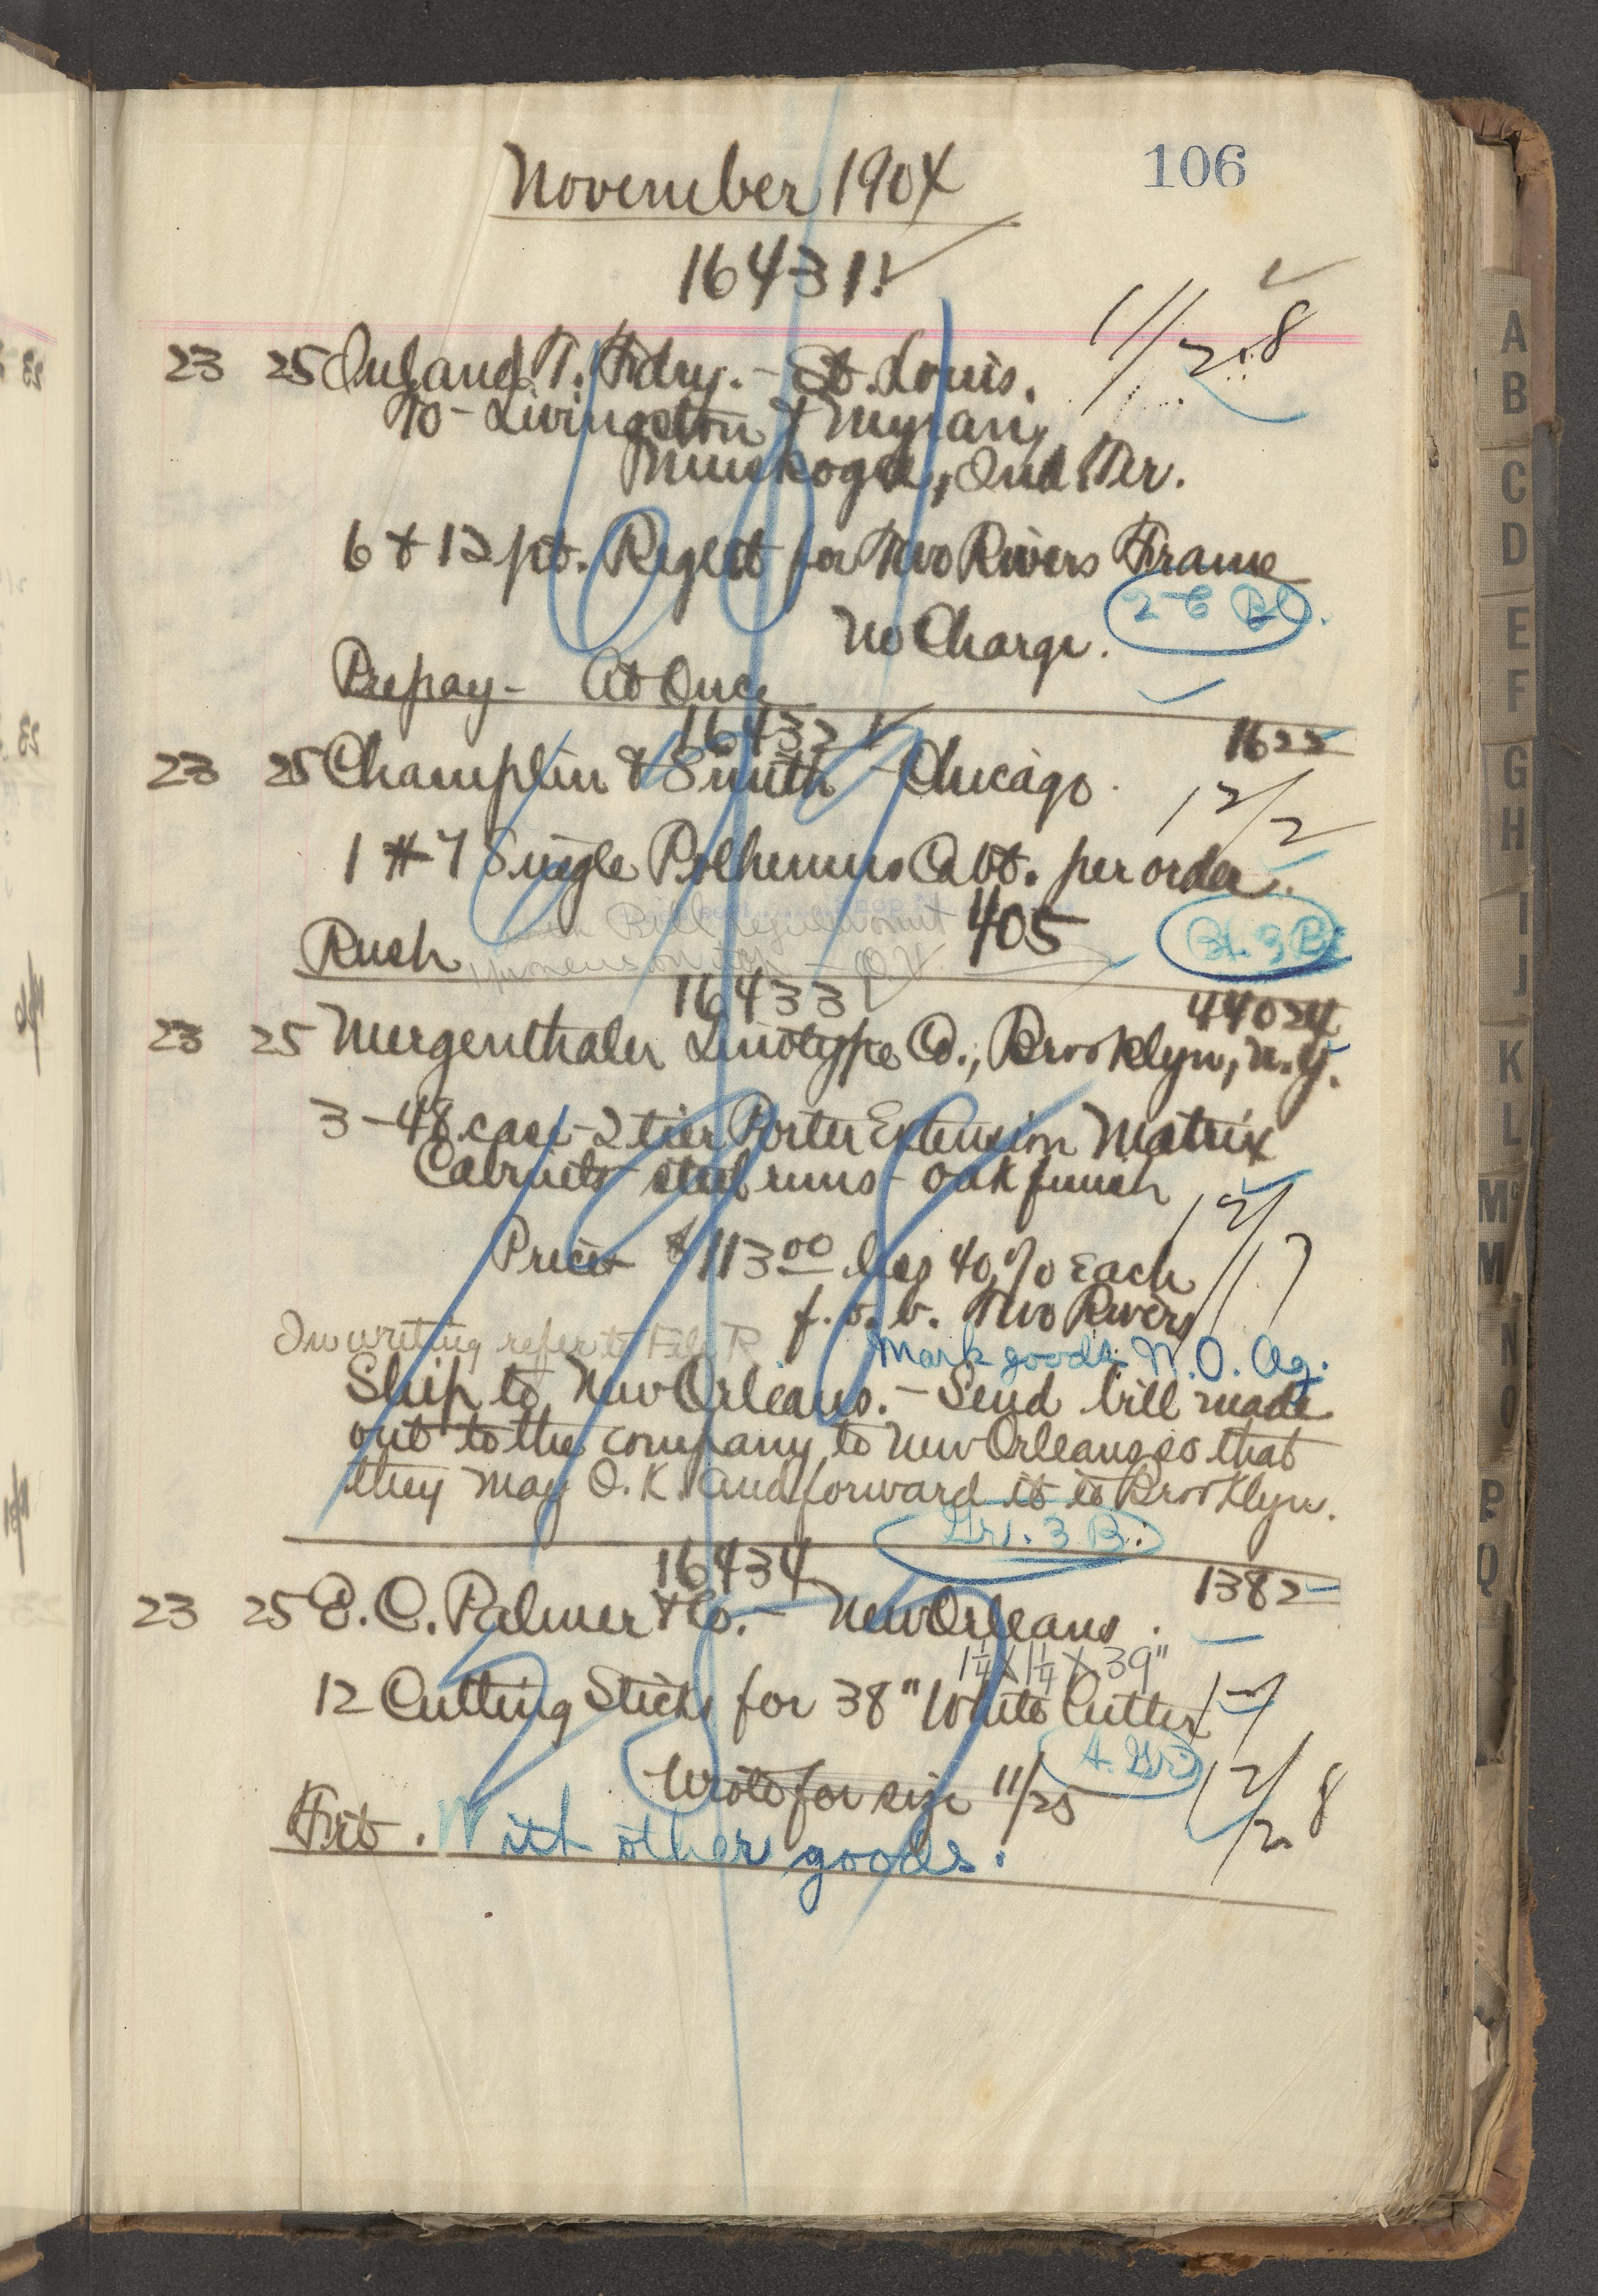 November 1904
106
16431
11/28
23 25 Inland T. Fdry. - St. Louis.
To - Livingston & Myran,
Muskogee, Ind Ter.
6 & 12 pt. Reglet for Two Rivers Frame
No Charge.
Prepay - At Once
16432 1622
23 25 Champlin & Smith - Chicago.
12/2
1 #7 Single Polhemus Cabt. per order.
405
Rush
16433 44024
23 25 Mergenthaler Linotype Co., Brooklyn, N.Y.
3 - 48 case - 2 tier Porter Extension Matrix
Cabinets steel runs - oak finish
Price $113 00 less 40% Each
f.o.b. Two Rivers
In writing refer to File R
Mark goods N.O. Ag.
Ship to New Orleans. - Send bill made
out to the company to New Orleans so that
they may O.K. and forward it to Brooklyn.
Gri. 3 B.
16434 1382
23 25 E.C. Palmer & Co. - New Orleans.
1 1/4 X 1 1/4 X 39"
12 Cutting Sticks for 38" White Cutter
Wrote for size 11/25
Frt. With other goods.
A B C D E F G H I J K L M M N O P Q